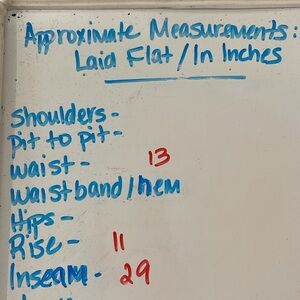 Approximate Measurements:
Laid Flat/In Inches
Shoulders -
Pit to pit -
Waist - 13
Waistband/hem
Hips -
Rise - 11
Inseam - 29